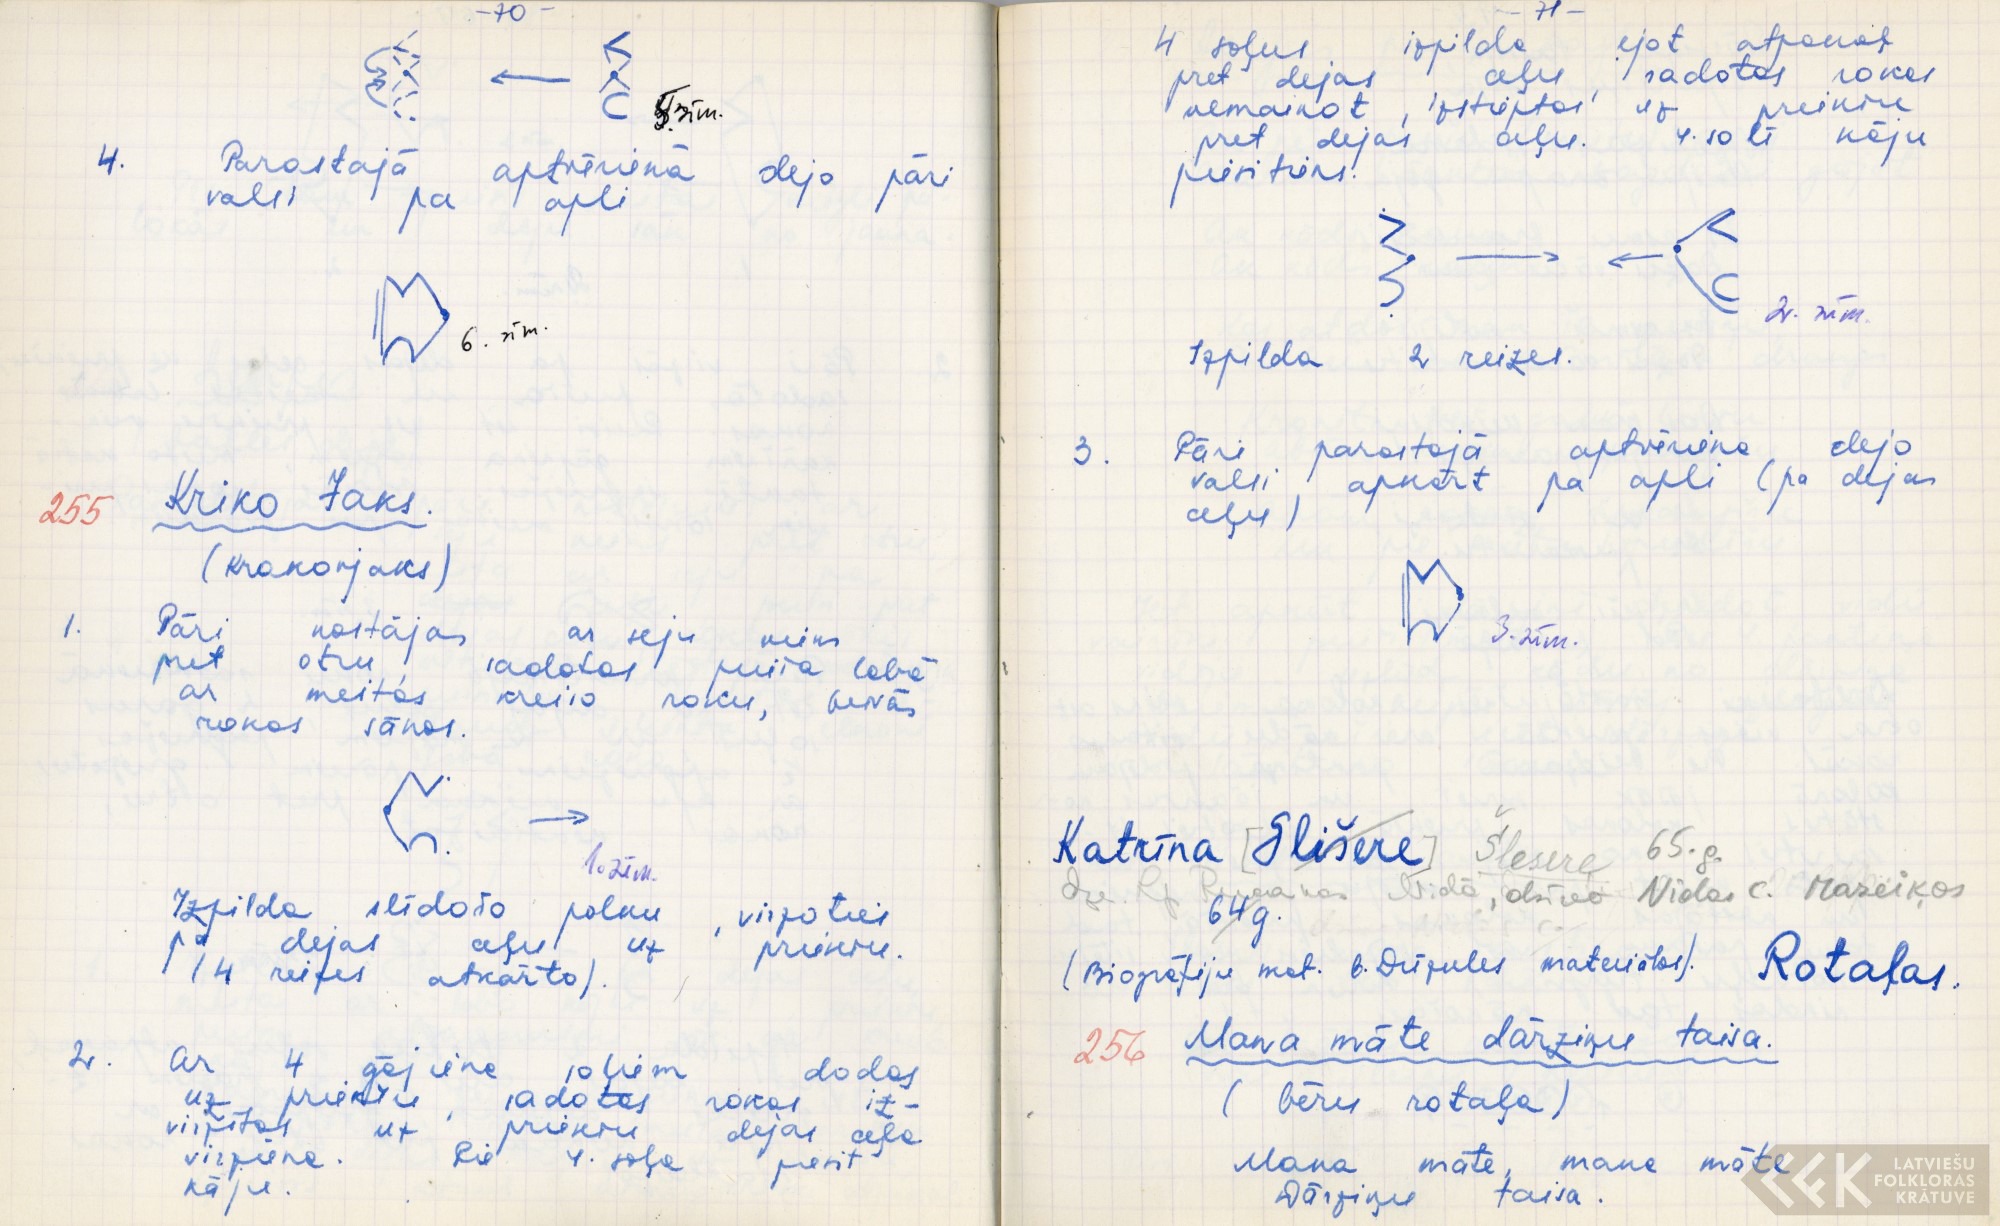 -70-
5. zīm.
4. Parastajā aptvērienā dejo pāri
valsi pa apli
6. zīm.
255 Kriko Jaks.
(Krakovjaks)
1. Pāri nostājas ar seju viens
pret otru sadotas puiša labā
ar meitas kreiso roku, brīvās
rokas sānos.
1. zīm.
Izpilda slīdošo polku, virzoties
pa dejas ceļu uz priekšu.
(4 reizes atkārto).
2. Ar 4 gājiena soļiem dodas
uz priekšu, sadotas rokas iz-
virzītas uz priekšu dejas ceļa
virzienā. Pie 4. soļa piesit
kāju.
-71-
4 soļus izpilda ejot atpakaļ
pret dejas ceļu, sadotas rokas
nemainot, izstieptas uz priekšu
pret dejas ceļu. 4. solī kāju
piesitiens.
2. zīm.
Izpilda 2 reizes.
3. Pāri parastajā aptvērienā dejo
valsi apkārt pa apli (pa dejas
ceļu)
3. zīm.
Katrīna [Slišere] Šlesere 65. g.
Nidā, dzīvo Nidas c. Mazeikos
64 g.
(Biogrāfiju mat. b. Drīzules materiālos). Rotaļas.
256 Mana māte dārziņu taisa.
(bēru rotaļa)
Mana māte, mana māte
Dārziņu taisa.
LATVIEŠU
FOLKLORAS
KRĀTUVE